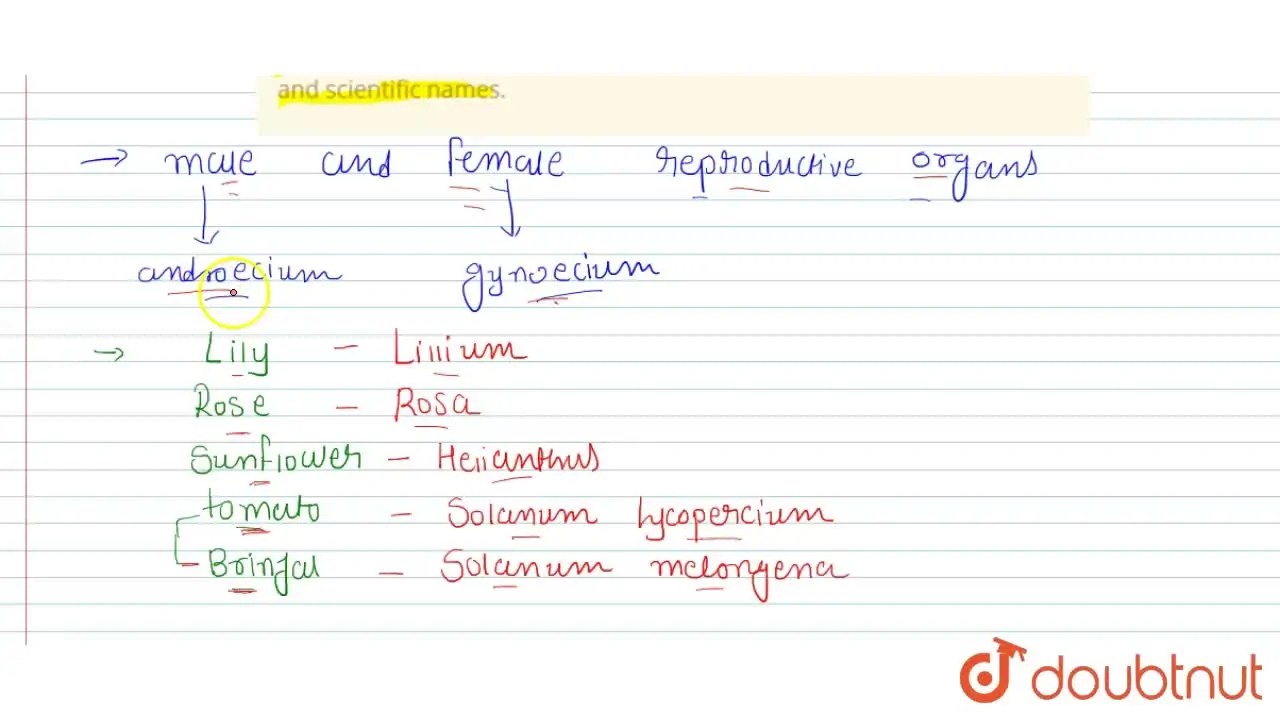 and scientific names.
→ male and female reproductive organs
androecium gynoecium
→ Lily – Lilium
Rose – Rosa
Sunflower – Helianthus
tomato – Solanum lycopercium
Brinjal – Solanum melongena
doubtnut